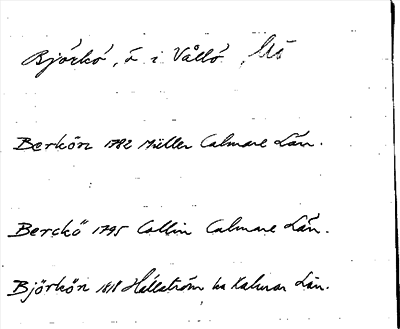 Björkö, ö i Vållö,
Berkön 1782 Müller Calmare Län.
Berckö 1795 Collin Calmare Län.
Björkön 1818 Hällström ka Kalmar Län.